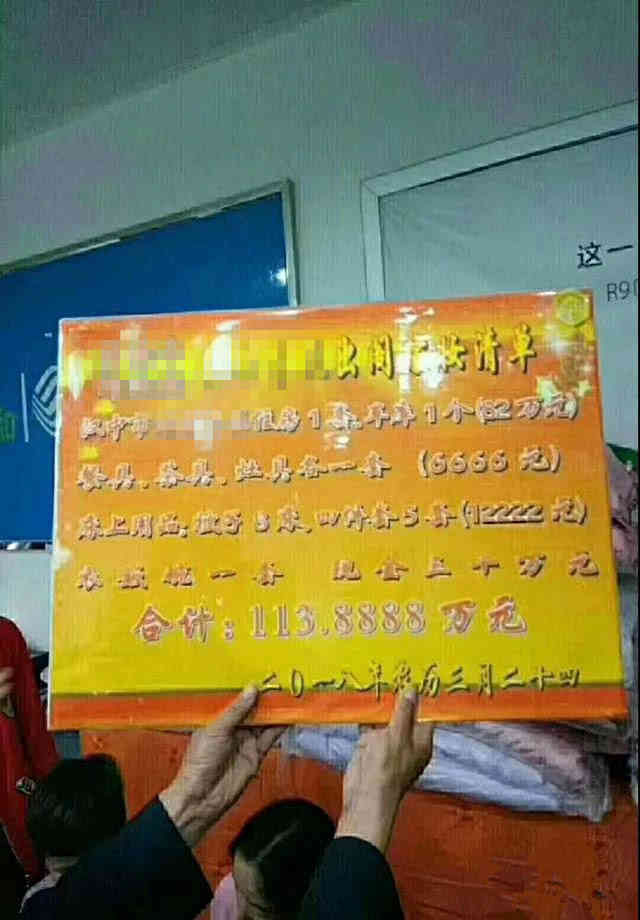 出阁妆清单
汉中市住房1套,车库1个(82万元)
餐具、茶具、灶具各一套 (6666元)
床上用品:被子床,四件套5套(12222元)
一套 现金三十万元
合计:113.8888万元
二〇一八年农历三月二十四
这一
R9
和